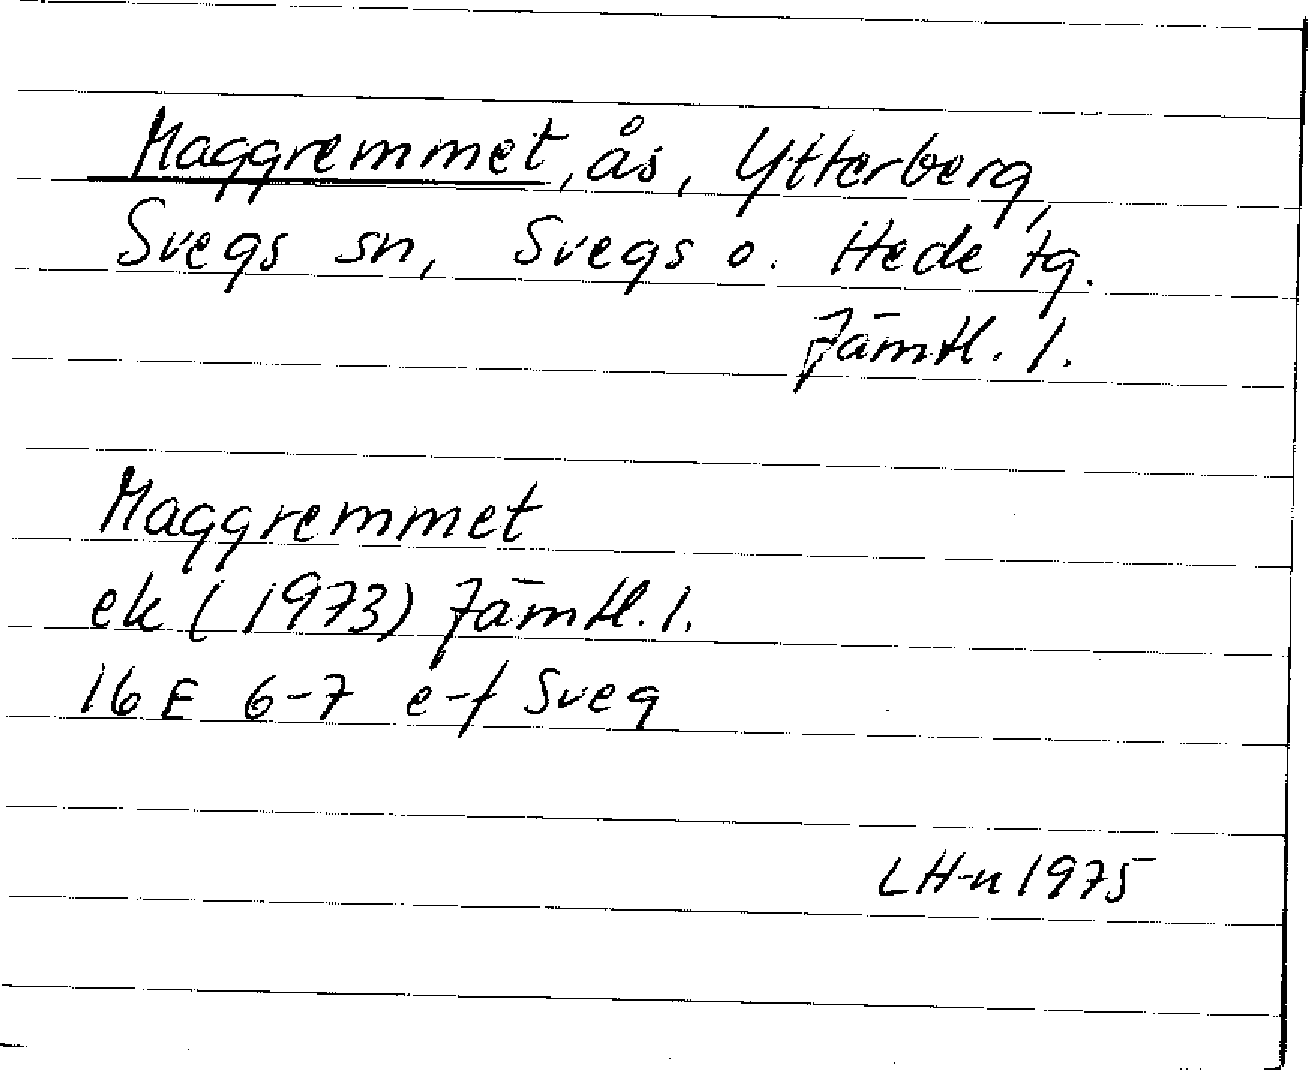 Maggremmet, ås, Ytterberg,
Svegs sn, Svegs o. Hede tg.
Jämtl. l.
Maggremmet
ek (1973) Jämtl. l.
16 E 6-7 e-f Sveg
LH-n 1975